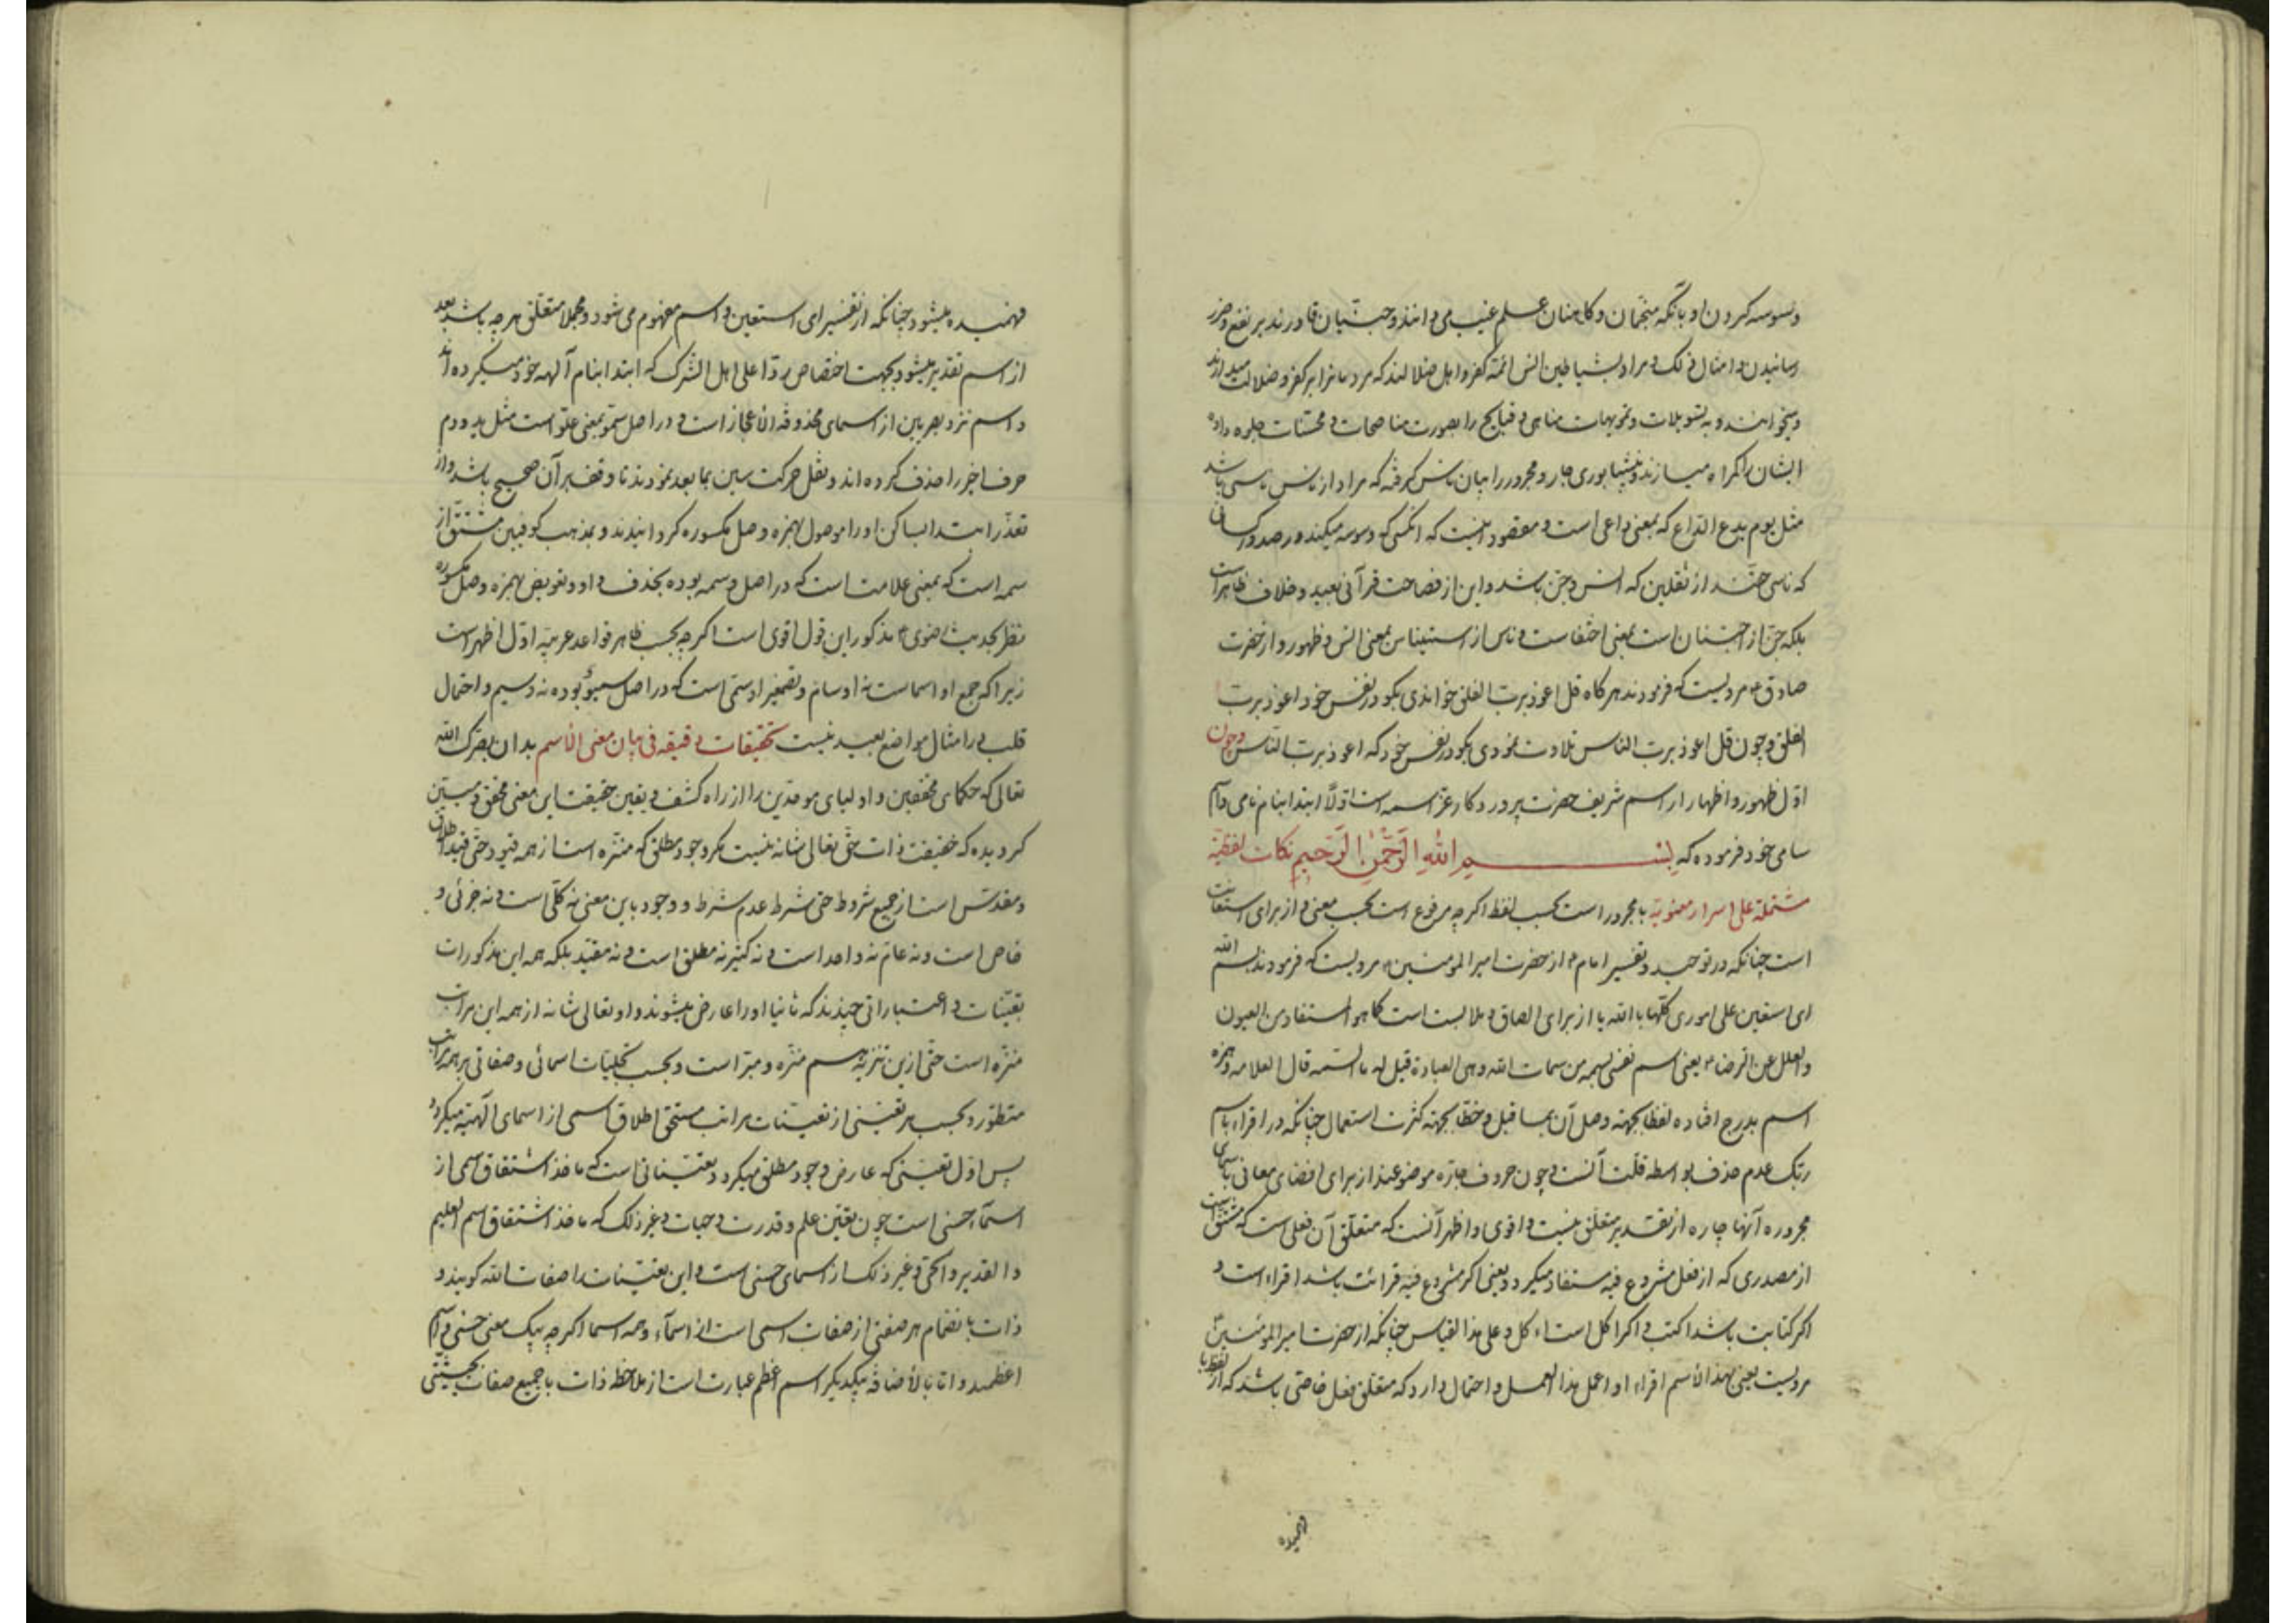 وسوسه کردن او بآنکه منجمان و کاهنان علم غیب می دانند و جنیان قادرند بر نفع و ضرر
رسانیدن و امثال ذلک و مراد بشیاطین انس ائمه کفر و اهل ضلالند که مردمانرا بر کفر و ضلالت میدارند
و میخوانند و به تسویلات و تمویهات مناهی و قبایح را بصورت مناصحات و محسنات جلوه داده
ایشان را کمراه میسازند و نیشابوری جار و مجرور را بیان ناس کرفته که مراد از ناس ناسی باشد
مثل یوم یدع الداع که بمعنی داعی است و مقصود اینست که آنکسی که وسوسه میکند در صدور کسانی
که ناسی حقند از ثقلین که انس و جن باشد و این از فصاحت قرآنی بعید و خلاف ظاهر است
بلکه جن از اجتنان است بمعنی اختفاست و ناس از استیناس بمعنی انس و ظهور و از حضرت
صادق ع مرویست که فرمودند هر کاه قل اعوذ برب الفلق خواندی بکو در نفس خود اعوذ برب
الفلق و چون قل اعوذ برب الناس تلاوت نمودی بکو در نفس خود که اعوذ برب الناس و چون
اول ظهور و اظهار از اسم شریف حضرت پروردکار عز اسمه است اولا ابتدا بنام نامی و اسم
سامی خود فرموده که بِسْمِ اللهِ الرَّحْمٰنِ الرَّحِيمِ نکات لفظیة
مشتملة علی اسرار معنویة با مجرور است بحسب لفظ اکرچه مرفوع است بحسب معنی و از برای استعانت
است چنانکه در توحید و تفسیر امام ع از حضرت امیر المومنین ع مرویست که فرمودند بسم الله
ای استعین علی اموری کلها بالله یا از برای الصاق و ملابست است کما هو المستفاد من العیون
والعلل عن الرضا ع یعنی اسم نفسی بسمة من سمات الله وهی العبادة قیل له ما السمة قال العلامة و همزه
اسم بدرج افتاده لفظا بجهة وصل آن بما قبل و خطا بجهة کثرت استعمال چنانکه در اقراء باسم
ربک عدم حذف بواسطه قلت آنست و چون حروف جاره موضوعند از برای افضای معانی باسمای
مجروره آنها چاره از تقدیر متعلق نیست و اقوی و اظهر آنست که متعلق آن فعلی است که مشتق است
از مصدری که از فعل مشروع فیه مستفاد میکردد یعنی اکر مشروع فیه قرائت باشد اقراء است و
اکر کتابت باشد اکتب و اکر اکل است اکل و علی هذا القیاس چنانکه از حضرت امیر المومنین ع
مرویست یعنی بهذا الاسم اقراء او اعمل هذا العمل و احتمال دارد که متعلق بفعل خاصی باشد که از لفظ با
فهمیده
فهمیده میشود چنانکه از تفسیر ای استعین و اسم مفهوم می شود و مجملا متعلق هر چه باشد بعد
از اسم تقدیر میشود بجهت اختصاص و ردا علی اهل الشرک که ابتدا بنام آلهه خود میکرده اند
و اسم نزد بصریین از اسمای محذوفة الاعجاز است و در اصل سمو بمعنی علو است مثل ید و دم
حرف اخر را حذف کرده اند و نقل حرکت سین بما بعد نمودند تا وقف بر آن صحیح باشد و از
تعذر ابتدا بساکن او را موصول بهمزه وصل مکسوره کردانیدند و بمذهب کوفیین مشتق از
سمه است که بمعنی علامت است که در اصل وسمه بوده بحذف واو و تعویض همزه وصل مکسوره
نظر بحدیث رضوی ع مذکور این قول اقوی است اکرچه بحسب ظاهر قواعد عربیه اول اظهر است
زیرا که جمع او اسماست نه اوسام و تصغیر او سمی است که در اصل سمیو بوده نه وسیم و احتمال
قلب در امثال مواضع بعید نیست تحقیقات دقیقه فی بیان معنی الاسم بدان بصرک الله
تعالی که حکمای محققین و اولیای موحدین را از راه کشف و یقین حقیقت این معنی محقق و مبین
کردیده که حقیقت ذات حق تعالی شانه نیست مکر وجود مطلق که منزه است از همه قیود حتی قید اطلاق
و مقدس است از جمیع شروط حتی شرط عدم شرط و وجود باین معنی نه کلی است و نه جزئی و
خاص است و نه عام نه واحد است و نه کثیر نه مطلق است و نه مقید بلکه همه این مذکورات
تعینات و اعتباراتی چندند که ثانیا او را عارض میشوند و او تعالی شانه از همه این مراتب
منزه است حتی ازین تنزیه هم منزه و مبرا است و بحسب تجلیات اسمائی و صفاتی بر همه مراتب
متطور و بحسب هر تعینی از تعینات مراتب مستحق اطلاق اسمی از اسمای آلهیه میکردد
پس اول تعینی که عارض وجود مطلق میکردد تعیناتی است که ماخذ اشتقاق اسمی از
اسماء حسنی است چون تعین علم و قدرت و حیات و غیر ذلک که ماخذ اشتقاق اسم العلیم
و القدیر و الحی و غیر ذلک از اسمای حسنی است و این تعینات را صفات الله کویند و
ذات بانضمام هر صفتی از صفات اسمی است از اسماء و همه اسما اکرچه بیک معنی حسنی و اسم
اعظمند و اما بالاضافه بیکدیکر اسم اعظم عبارت است از ملاحظه ذات با جمیع صفات بحیثیتی